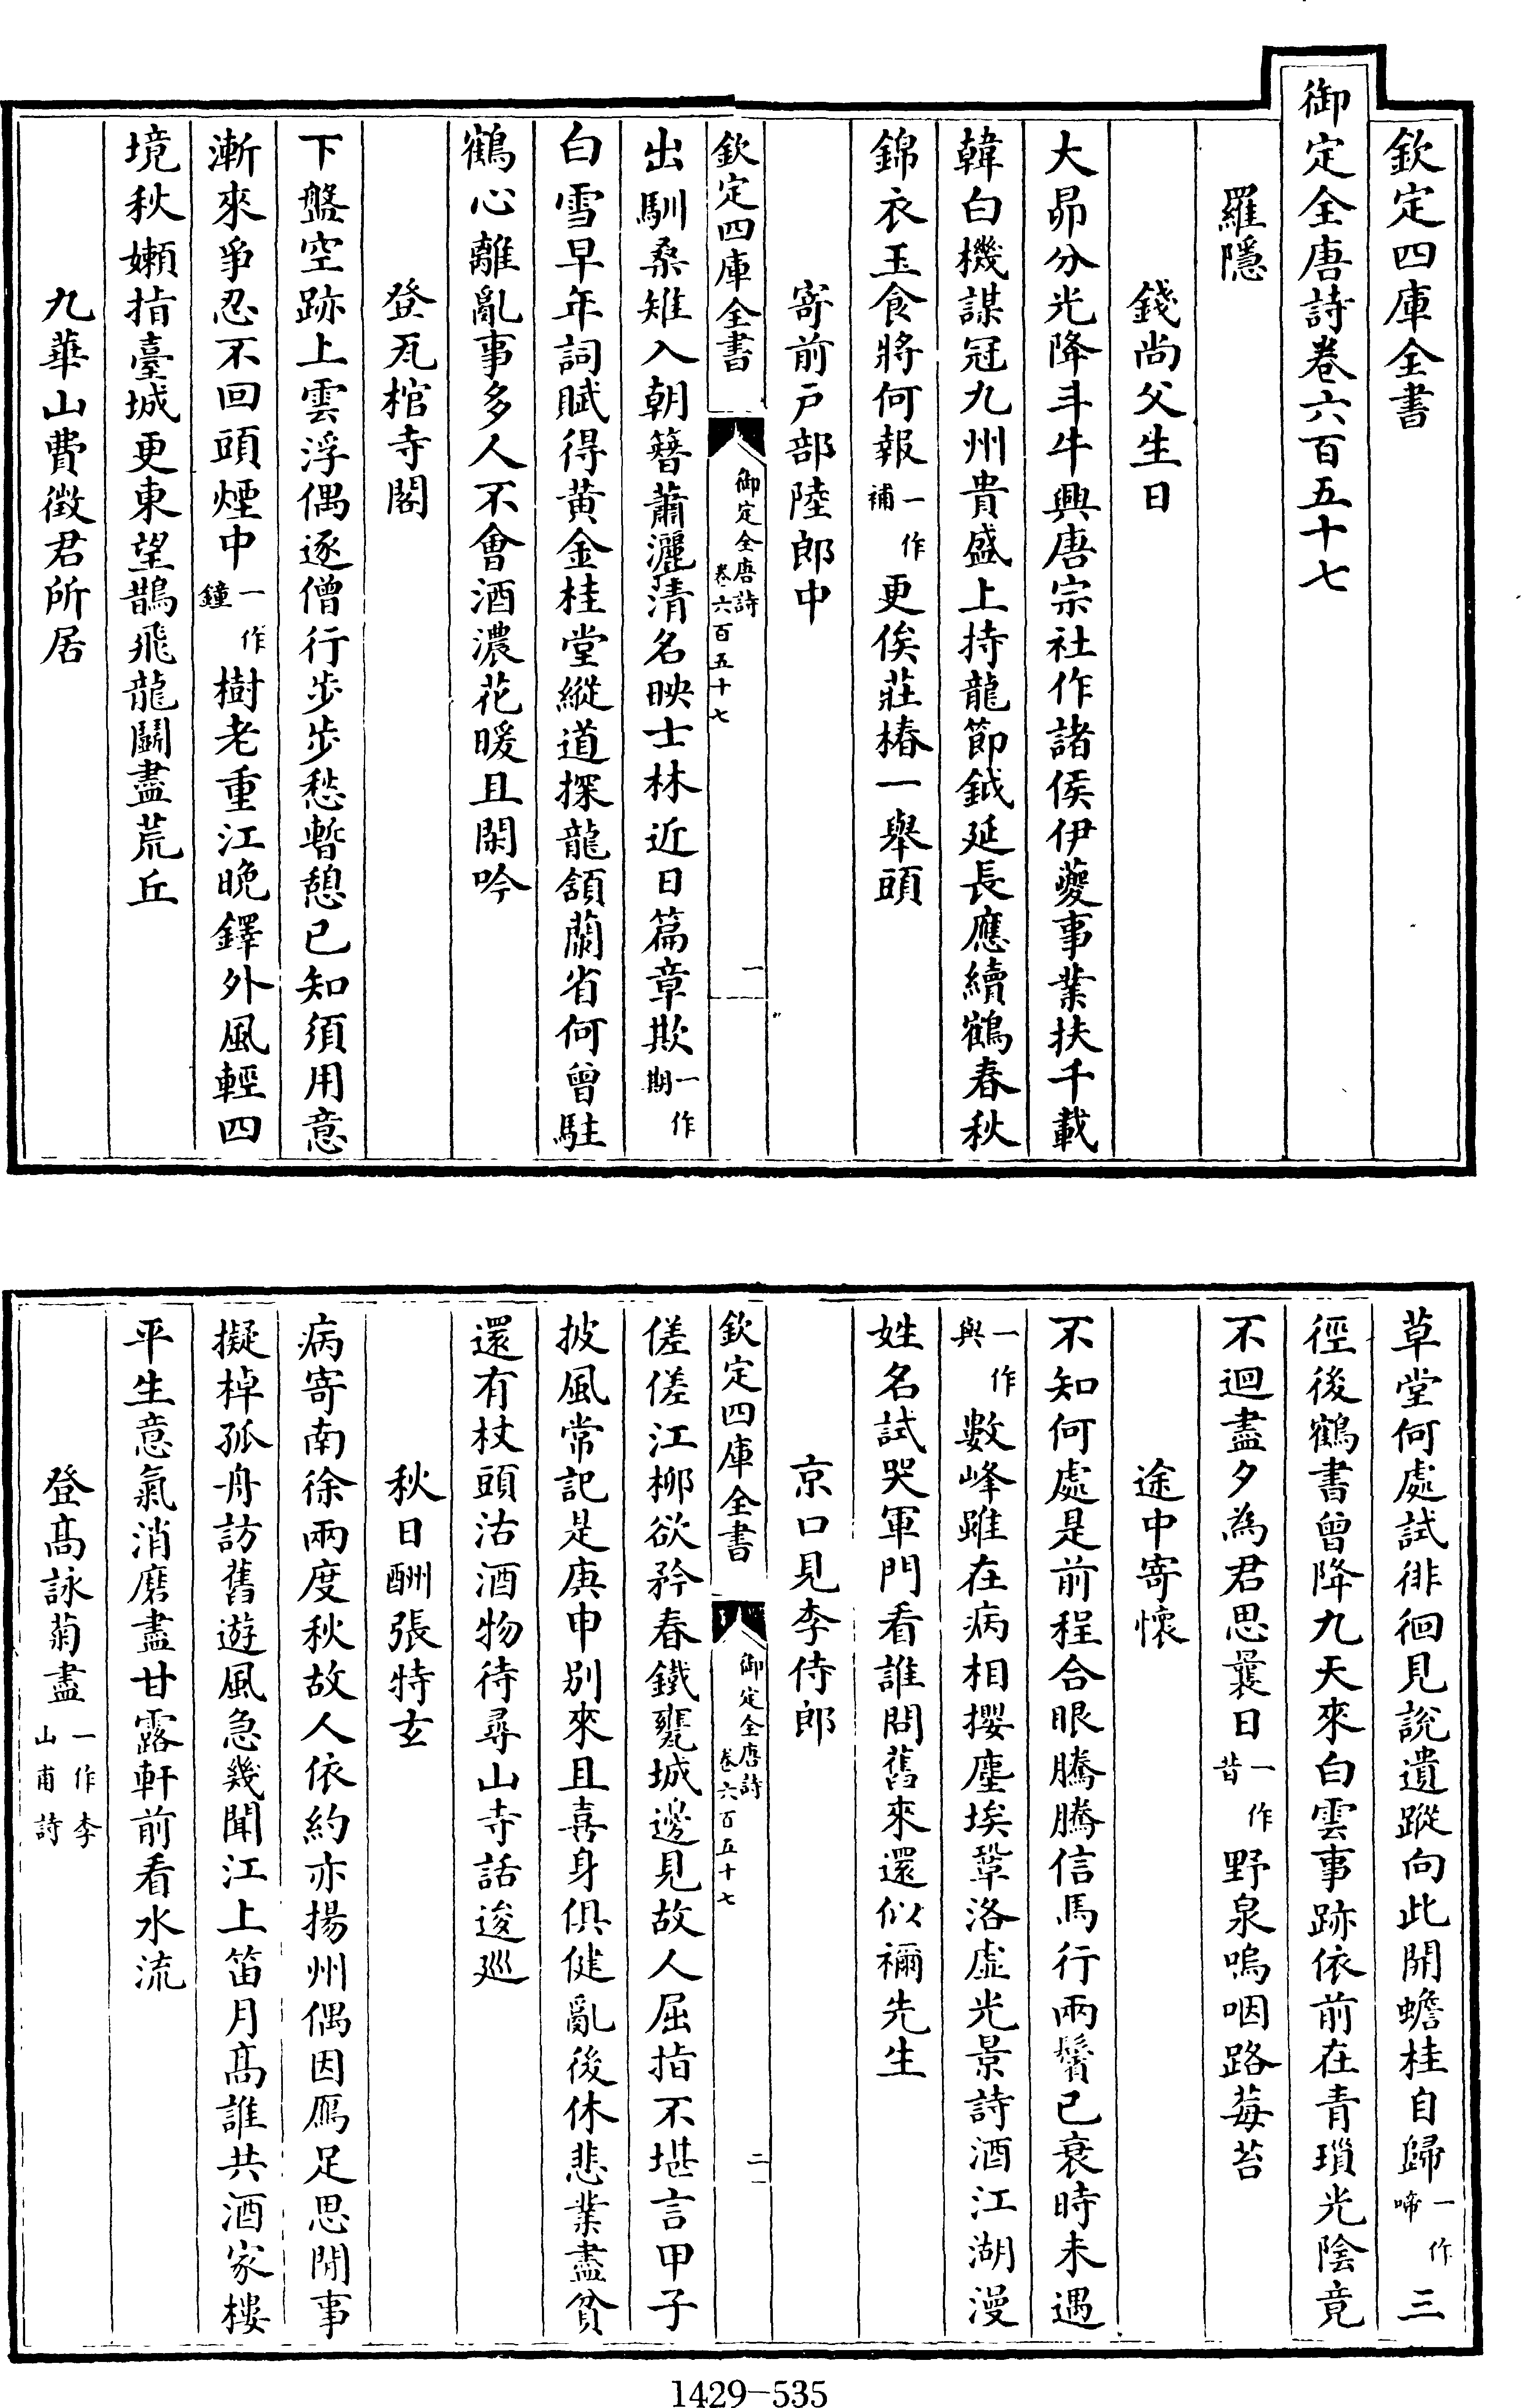 欽定四庫全書
御定全唐詩卷六百五十七
羅隱
錢尚父生日
大昴分光降斗牛興唐宗社作諸侯伊夔事業扶千載
韓白機謀冠九州貴盛上持龍節鉞延長應續鶴春秋
錦衣玉食將何報一作補更俟莊椿一舉頭
寄前戸部陸郎中
欽定四庫全書 御定全唐詩卷六百五十七 一
出馴桑雉入朝簪蕭灑清名映士林近日篇章欺一作期
白雪早年詞賦得黄金桂堂縱道探龍頷蘭省何曾駐
鶴心離亂事多人不會酒濃花暖且閑吟
登瓦棺寺閣
下盤空跡上雲浮偶逐僧行步步愁暫憩已知須用意
漸來爭忍不回頭煙中一作鐘樹老重江晚鐸外風輕四
境秋嬾指臺城更東望鵲飛龍鬬盡荒丘
九華山費徴君所居
草堂何處試徘徊見說遺蹤向此開蟾桂自歸一作啼三
徑後鶴書曾降九天來白雲事跡依前在青瑣光隂竟
不迴盡夕為君思曩日一作昔野泉嗚咽路莓苔
途中寄懷
不知何處是前程合眼騰騰信馬行兩鬢已衰時未遇
一作與數峰雖在病相攖塵埃鞏洛虛光景詩酒江湖漫
姓名試哭軍門看誰問舊來還似禰先生
京口見李侍郎
欽定四庫全書 御定全唐詩卷六百五十七 二
傞傞江柳欲矜春鐵甕城邊見故人屈指不堪言甲子
披風常記是庚申別來且喜身俱健亂後休悲業盡貧
還有杖頭沽酒物待尋山寺話逡巡
秋日酬張特玄
病寄南徐兩度秋故人依約亦揚州偶因鴈足思閒事
擬棹孤舟訪舊遊風急幾聞江上笛月髙誰共酒家樓
平生意氣消磨盡甘露軒前看水流
登髙詠菊盡一作李山甫詩
1429—535